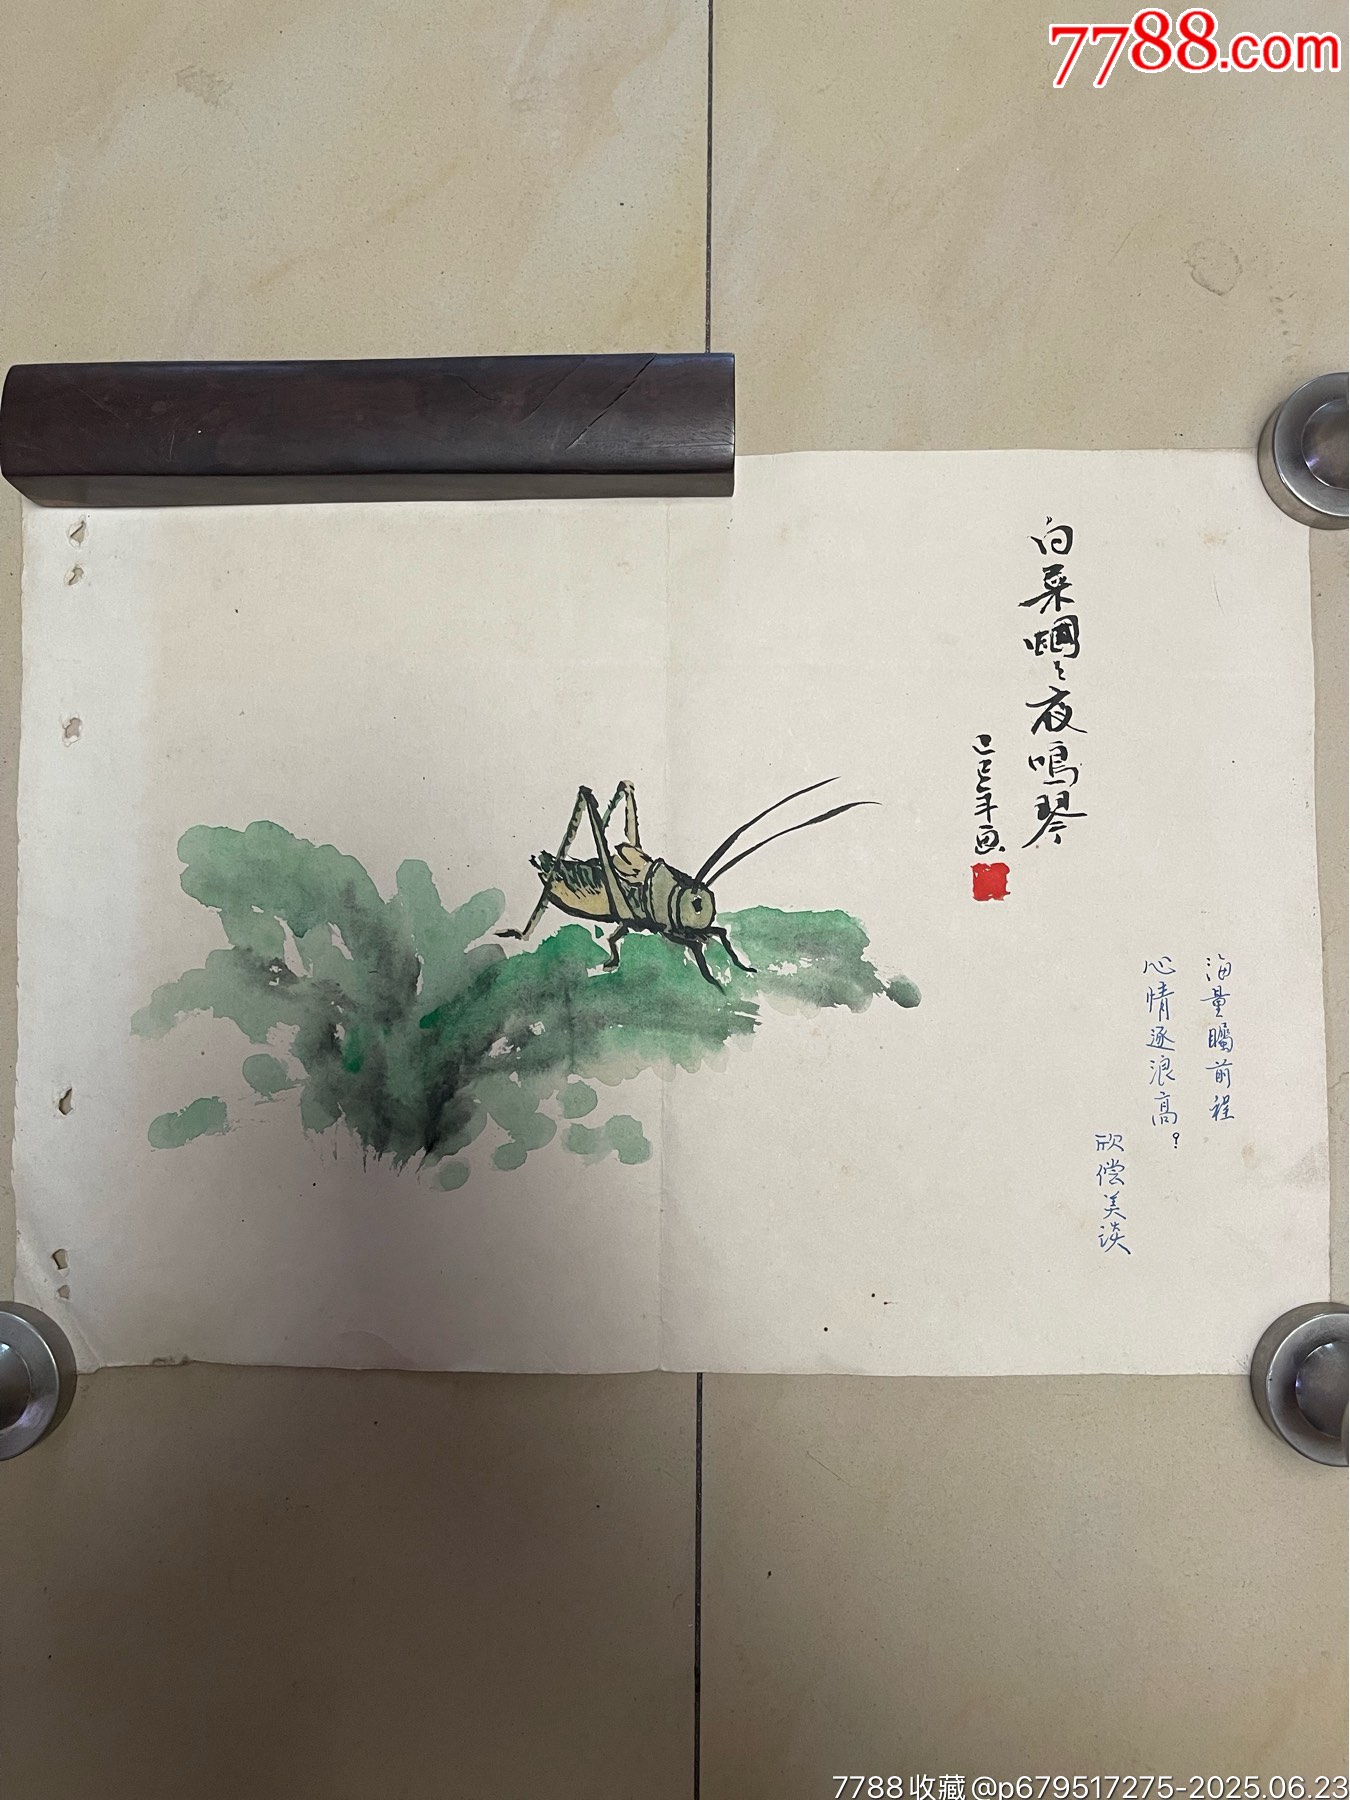 7788.com
白菜蟈々夜鳴琴
己巳年画
海量矚前程
心情逐浪高?
欣偿美谈
7788收藏@p679517275-2025.06.23